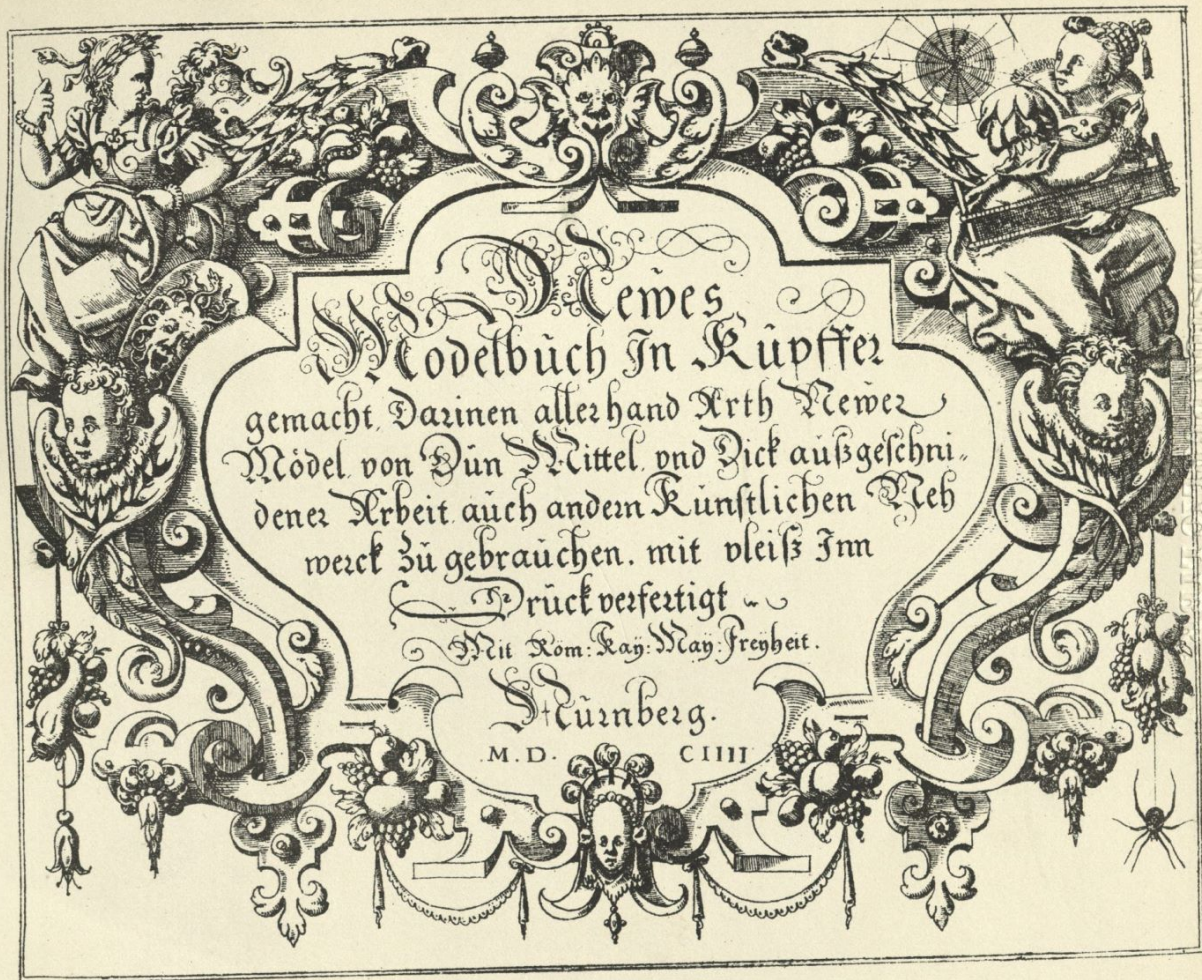 Newes
Modelbüch In Küpffer
gemacht, Darinen allerhand Arth Newer
Mödel von Dün Mittel vnd Dick außgeschni-
dener Arbeit auch andern Künstlichen Neh
werck zü gebrauchen. mit vleiß Inn
Drück verfertigt
Mit Röm: Kay: May: Freyheit.
Nürnberg.
M. D. CIIII